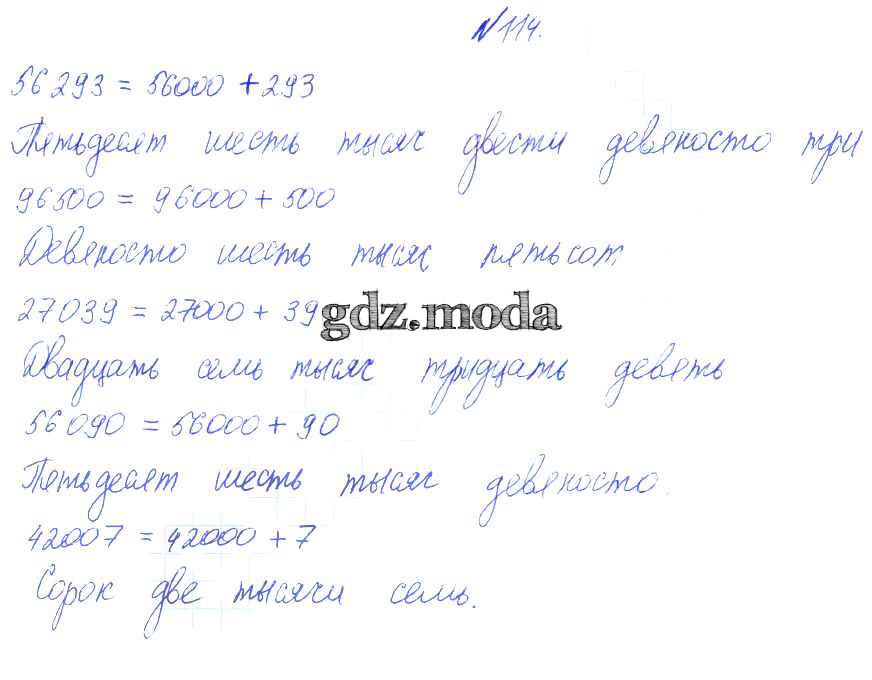 №114.
56293 = 56000 + 293
Пятьдесят шесть тысяч двести девяносто три
96500 = 96000 + 500
Девяносто шесть тысяч пятьсот
27039 = 27000 + 39
gdz.moda
Двадцать семь тысяч тридцать девять
56090 = 56000 + 90
Пятьдесят шесть тысяч девяносто.
42007 = 42000 + 7
Сорок две тысячи семь.